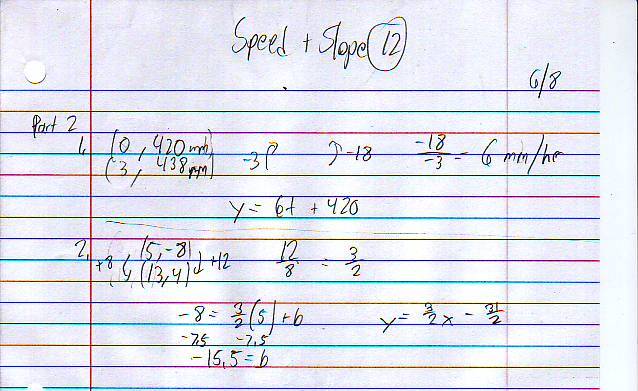 Speed + Slope 12
6/8
Part 2
1. (0, 420 mm) -3 -18 -18/-3 = 6 mm/hr
(3, 438 mm)
y = 6t + 420
2. (5, -8) +12 12/8 = 3/2
+8 (13, 4)
-8 = 3/2(5) + b y = 3/2x - 31/2
-7.5 -7.5
-15.5 = b